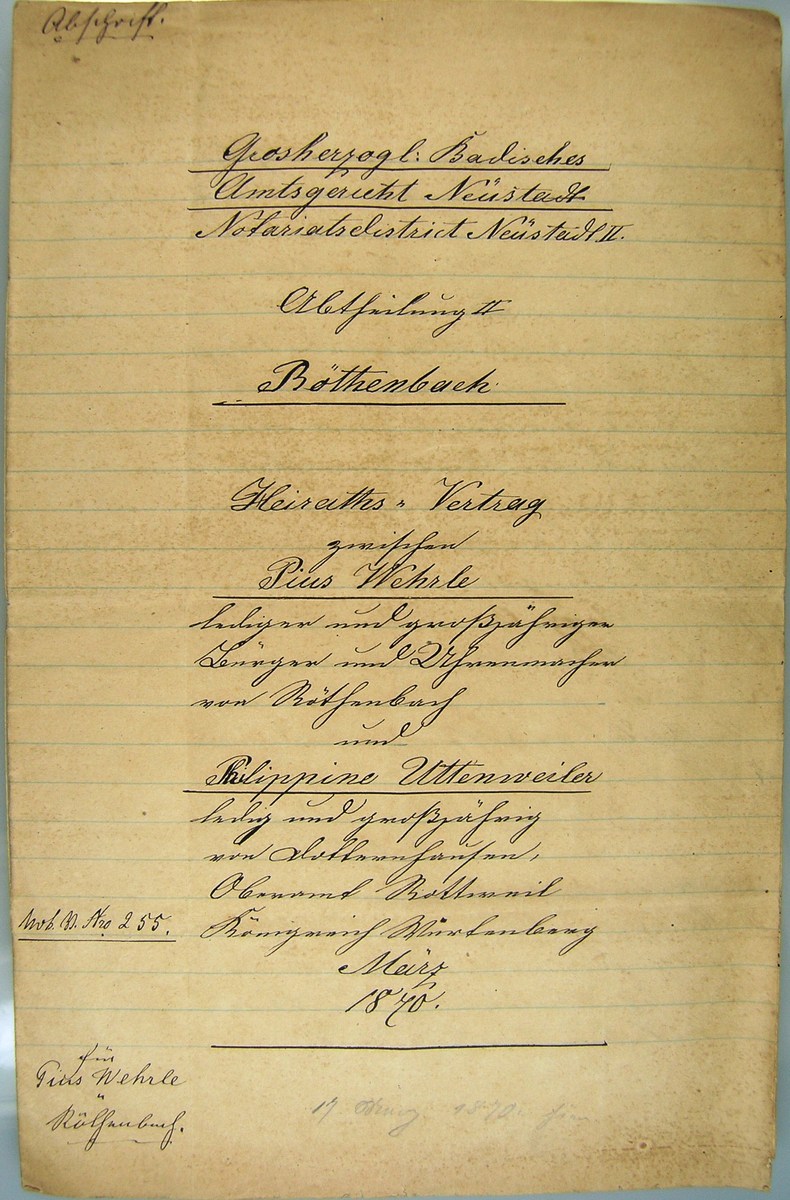 Abschrift.
Grosherzogl: Badisches
Amtsgericht Neüstadt
Notariatsdistrict Neüstadt II.
Abtheilung II
Röthenbach
Heiraths = Vertrag
zwischen
Pius Wehrle
lediger und großjähriger
Bürger und Uhrenmacher
von Röthenbach
und
Philippine Uttenweiler
ledig und großjährig
von Dotternhausen,
Oberamt Rottweil
Königreich Würtenberg
März
1870.
Nro 255.
für
Pius Wehrle
Röthenbach.
17 1870